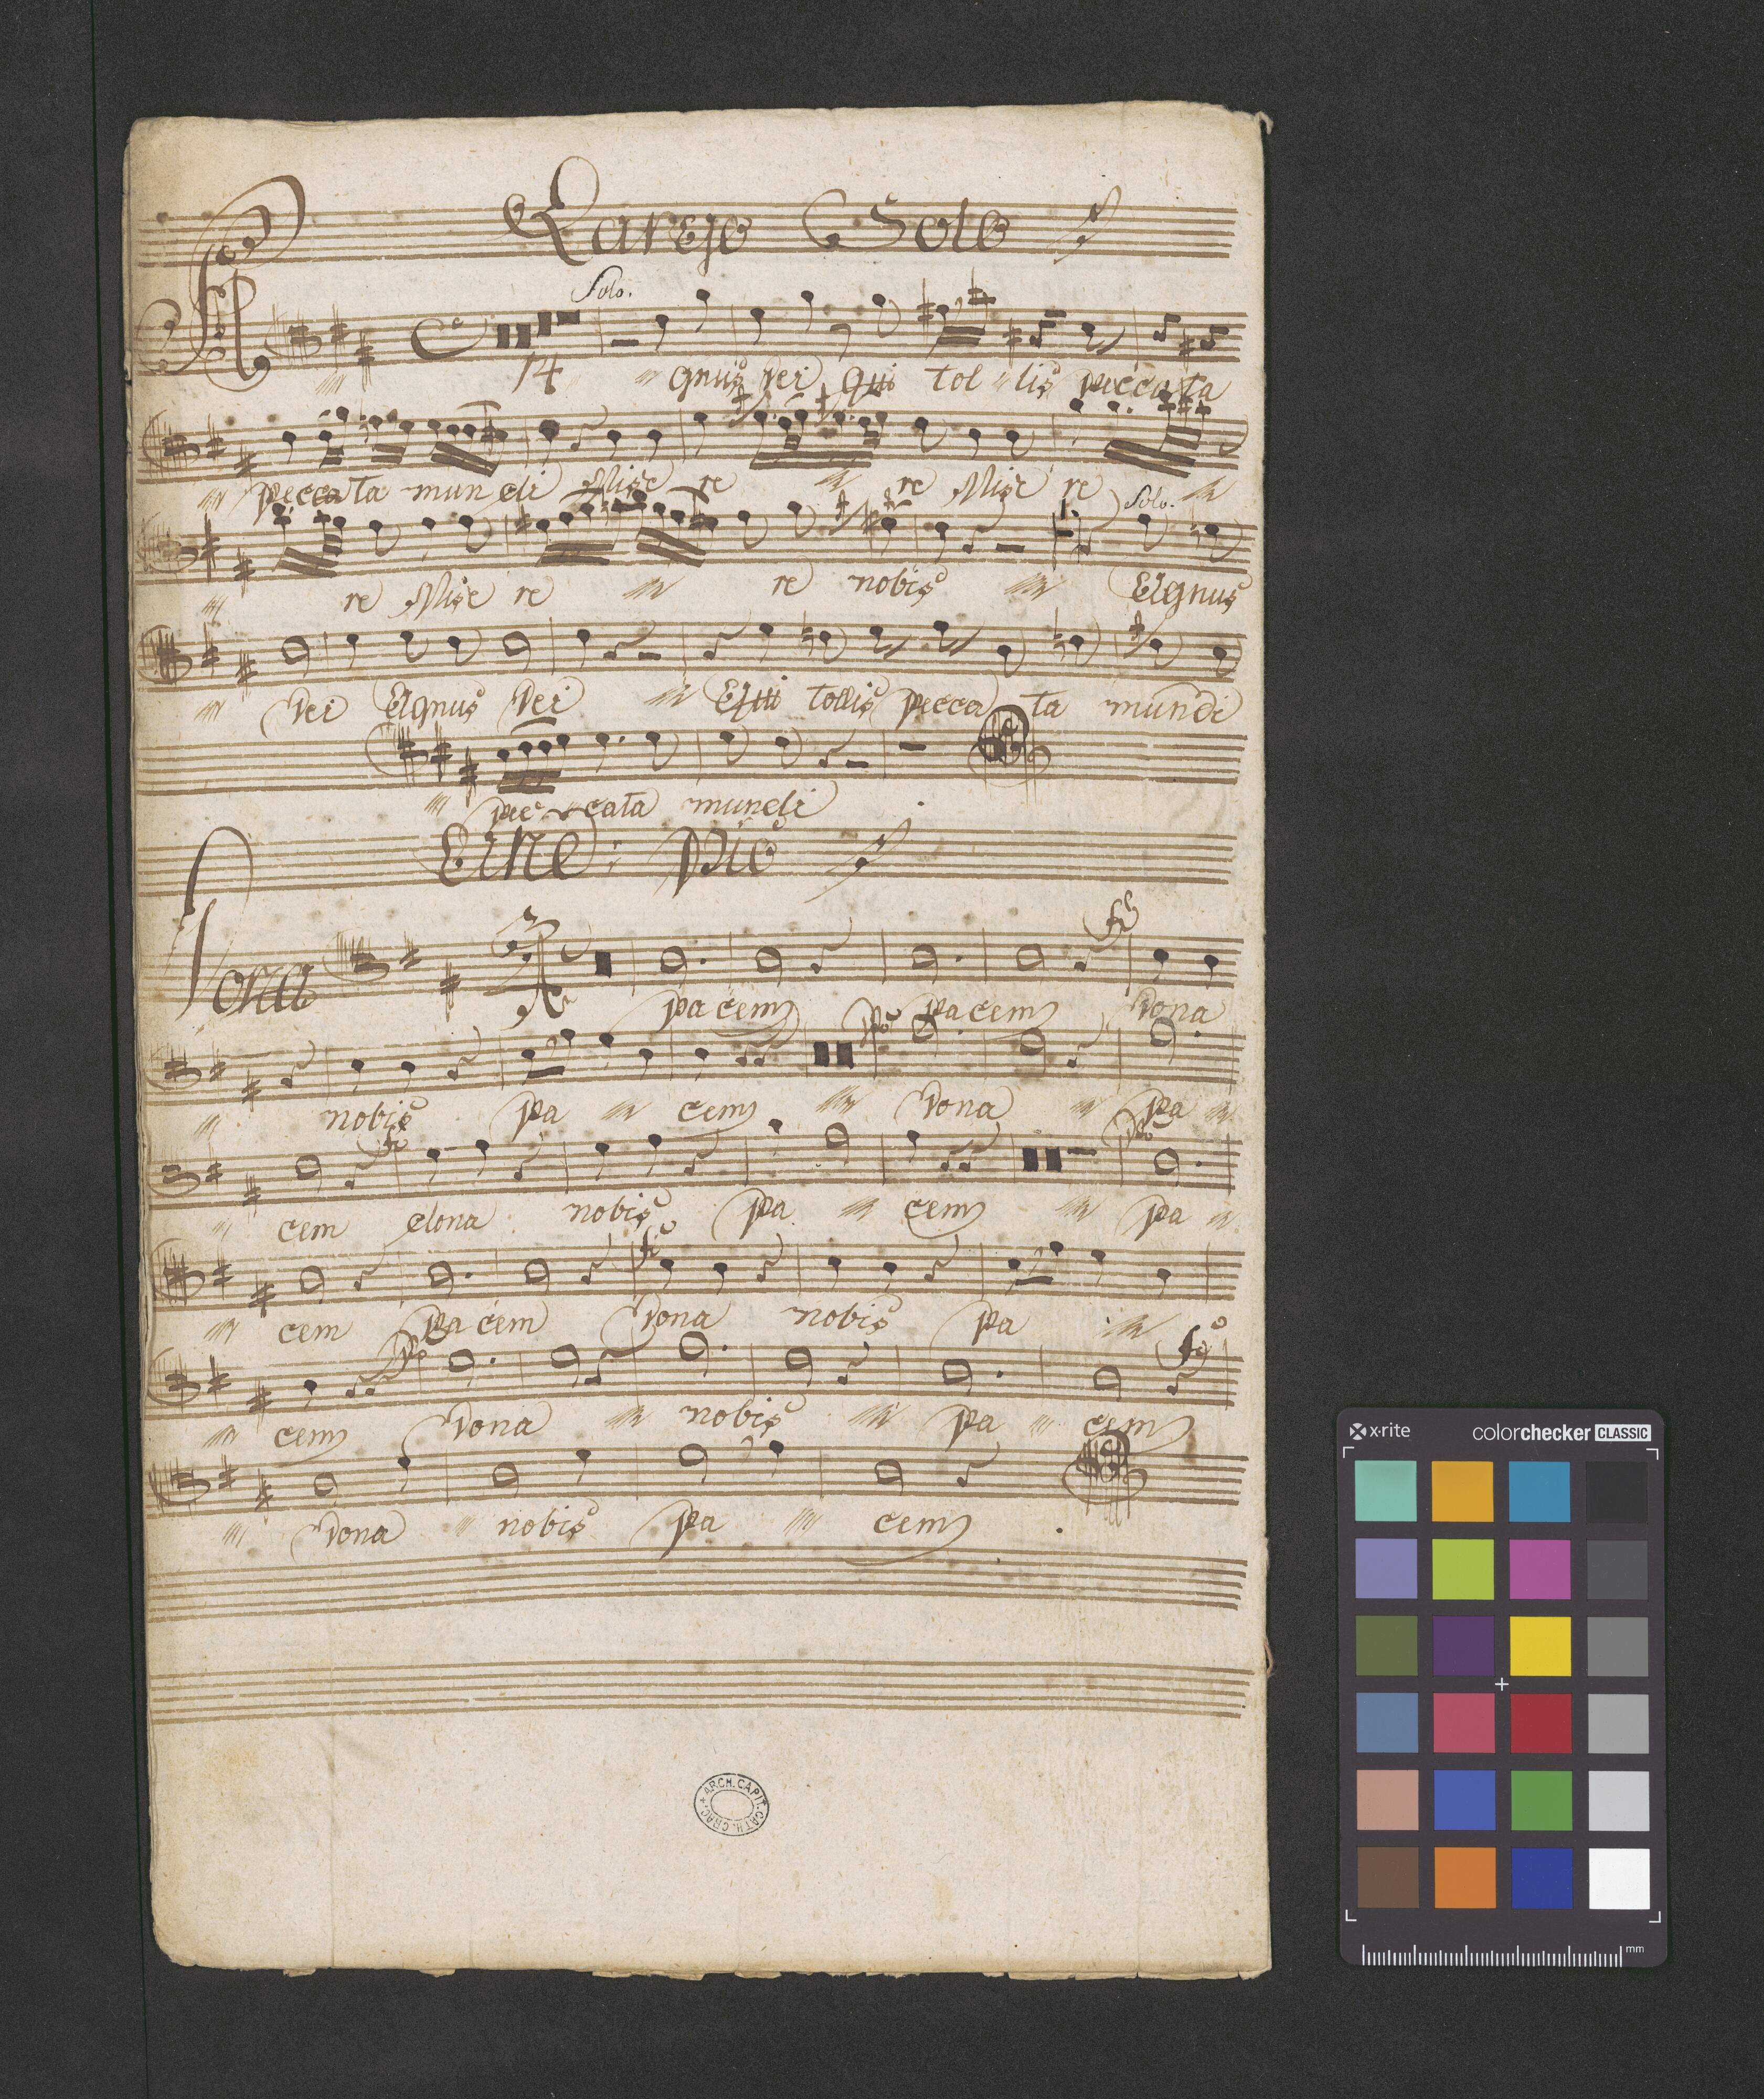 Larejo Solo
Solo.
A 14 gnus Dei qui tol lis peccata
peccata mundi Mise re re Mise re Solo.
re Mise re re nobis Agnus
Dei Agnus Dei Qui tollis pecca ta mundi
pec cata mundi
fo
Dona pacem pacem Dona
po
nobis pa cem Dona pa
fo po
cem dona nobis pa cem pa
fo
cem pacem Dona nobis pa
po fo
cem Dona nobis pa cem
Dona nobis pa cem.
ARCH. CAPIT. CATH. CRAC.
x-rite colorchecker CLASSIC
mm